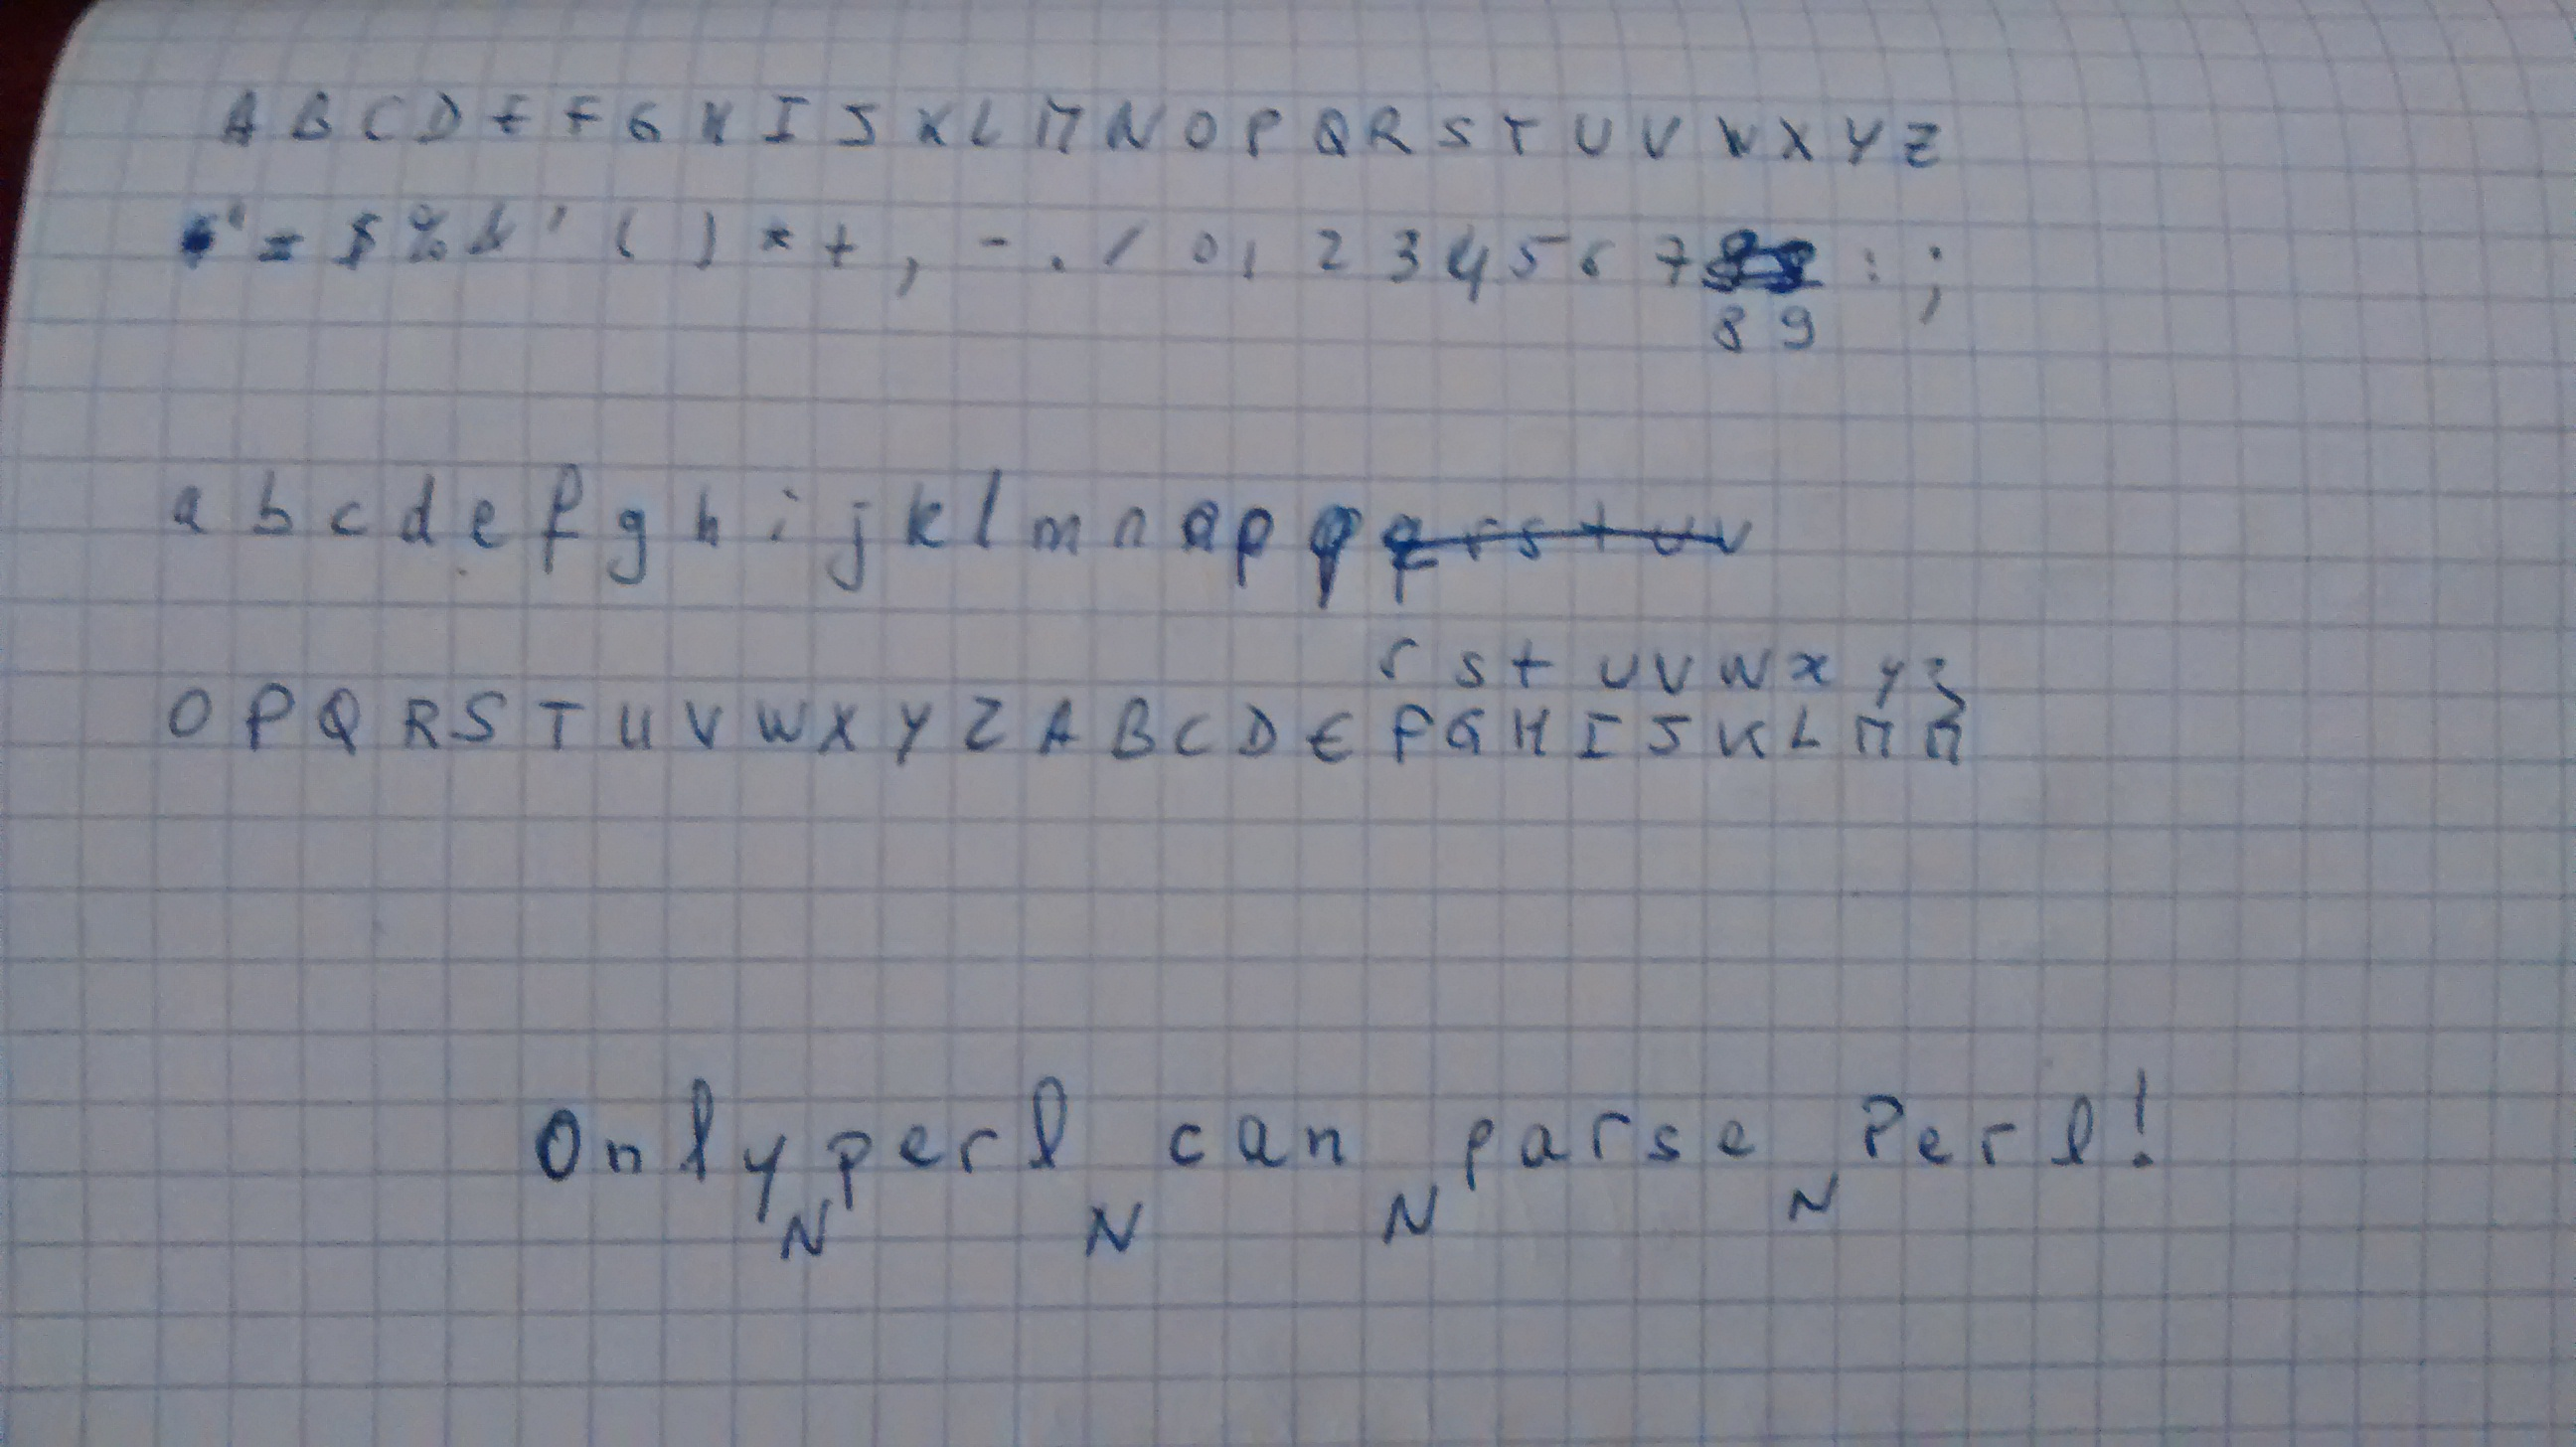 A B C D E F G H I J K L M N O P Q R S T U V W X Y Z
" = $ % & ' ( ) * + , - . / 0 1 2 3 4 5 6 7 : ;
8 9
a b c d e f g h i j k l m n o p q q r s t u v
r s t u v w x y z
O P Q R S T U V W X Y Z A B C D E F G H I J K L M N
Only perl can parse Perl!
N N N N